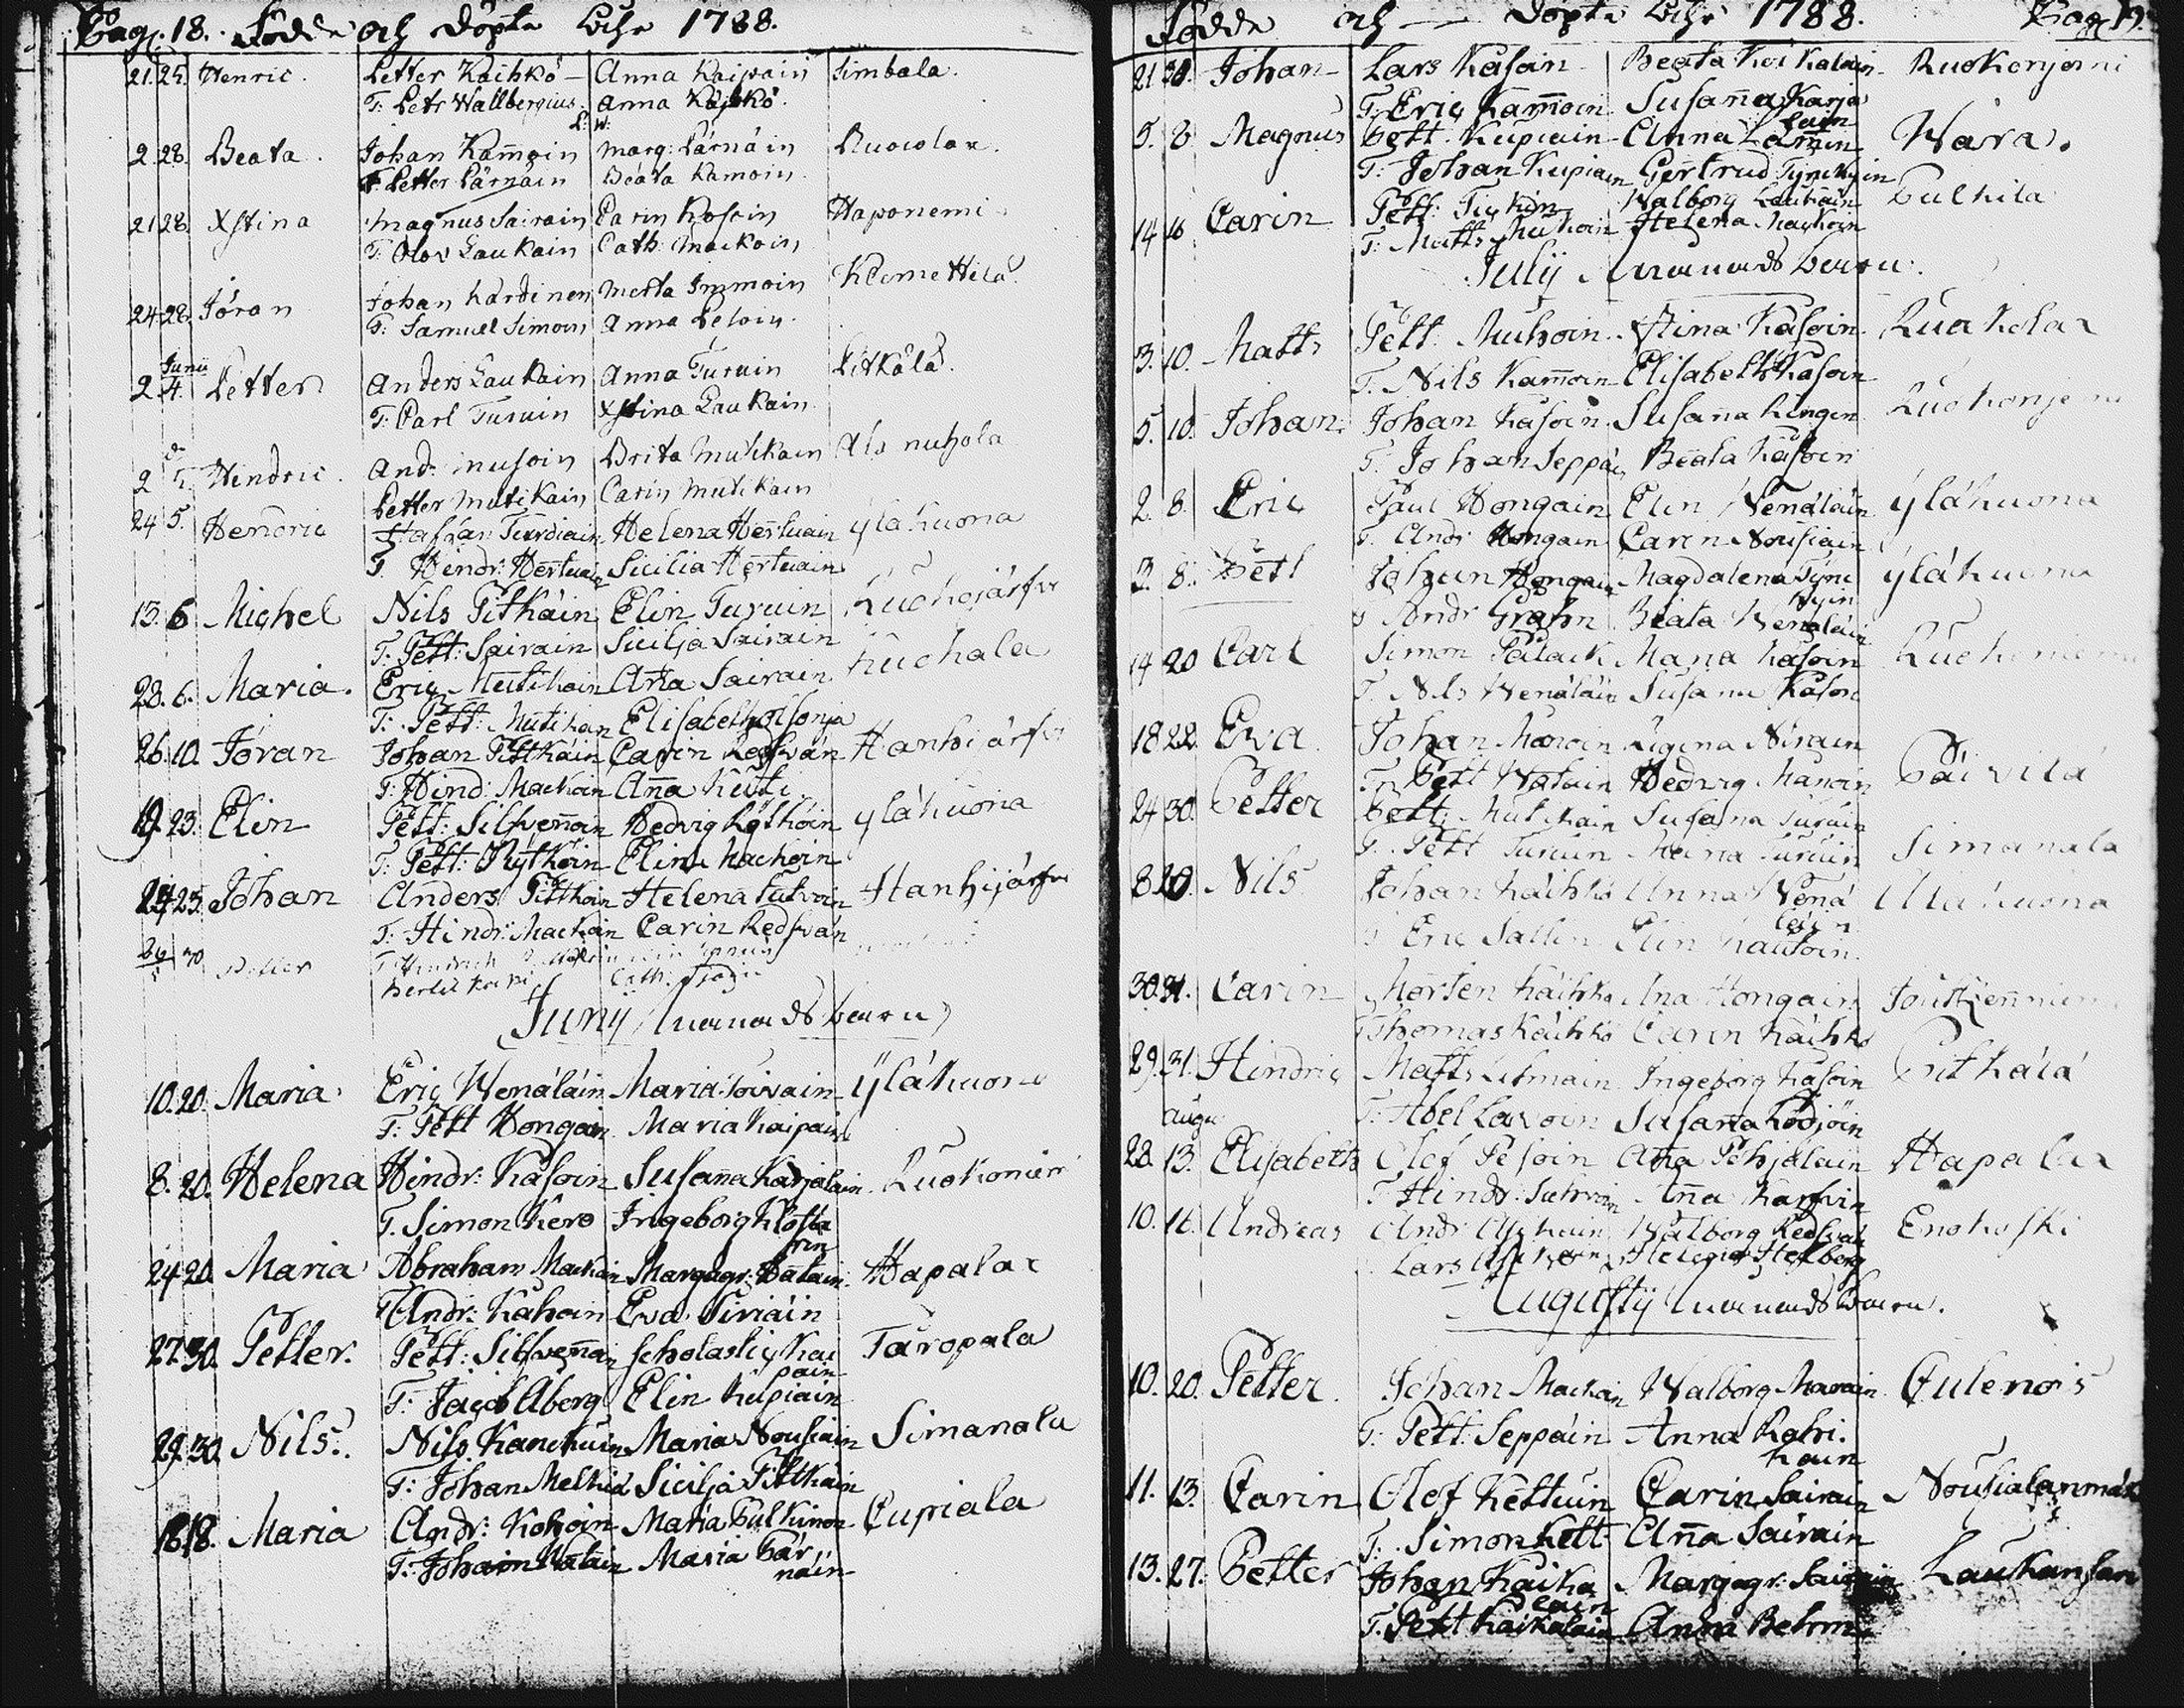 Pag. 18. Födde och Döpte Åhr 1788.
21. 25. Henric. Petter Kaihko Anna Kaipain Simbala.
T: Petr Wallbergius. Anna Kaihko
2. 28. Beata. Johan Kam̄oin Marg: Pärnäin Ruocolax.
T. Petter Pärnäin Beata Kamoin.
21 28 Xstina Magnus Sairain Carin Kosoin Haponemi
T: Olov Laukain Cath: Mackoin
24 28. Jöran Johan Kärdinen Metta Immoin Klemettilä.
T: Samuel Simoin Anna Pesoin
Junii
2 4. Petter Anders Laukain Anna Turuin Pitkälä.
T: Carl Turuin Xstina Laukain.
2 Hindric. And: Musoin Brita Mutikain Als nuhola
Petter Mutikain Carin Mutikain
24 5. Hendric Staffan Turdiain Helena Hertuain yläkuona
T. Hindr: Hertuain Sicilia Hertuain
13. 6 Michel Nils Pitkäin Elin Turuin Kuokojärfvi
T: Pett: Sairain Sicilja Sairain
28. 6. Maria. Eric Mutikain An̄a Sairain Kuohala
T: Pett: Mutikain Elisabeth
26. 10. Jöran Johan Pittkäin Carin Redsvän Hanhijärfvi
T: Hind: Mackoin An̄a Kuti.
19. 23. Elin Pett: Silfven̄oin Hedvig Löthöin yläkuona
T: Pett: Rytköin Elin Mackoin
24 25. Johan Anders Pittkoin Helena Lutvoin Hanhijärfvi
T: Hindr: Mackoin Carin Redsvän
29 30 Petter T. Hindrich
Cath:
Junij Månads barn
10. 20. Maria Eric Wenäläin Maria Toivain yläkuona
T: Pett Hongain Maria Kaipain
8. 20. Helena Hindr: Kasoin Susan̄a Karjalain Ruokoniemi
T. Simon Kero Ingeborg Kosta
rin
24 20. Maria Abraham Mackoin Margagr: Hätain Hapalax
T Andr: Kähoin Eva Siriäin
27. 30. Petter. Pett: Silfven̄oin Scholastic Kai Taropala
pain
T: Jacob Aberg Elin Kupiain
29. 30. Nils. Nils Kanckuin Maria Nousiain Simanala
T: Johan Melkid Sicilja Pittkäin
18 18. Maria Andr: Kohoin Maria Pulkinon Cupiala
T: Johan Matain Maria Pär
näin
Födde och Döpte Åhr 1788. Pag 19.
21 30 Johan Lars Kasoin Beata Kaikalain Ruokonjemi
T: Eric Kam̄oin Susan̄a Karja
lain
5. 8 Magnus Pett. Kupiain Anna Wara.
T: Johan Kupiain Gertrud Tynckyin
14 16 Carin Pett: Tickin Walborg Laukain Pulkila
T: Matts Muhoin Helena Mackoin
Julij Månads barn.
3. 10. Matts Pett. Muhoin Xstina Kasoin Ruokolax
T. Nils Kam̄oin Elisabeth Kasoin
5. 10. Johan Johan Kasoin Susana Ruokonjemi
T. Johan Seppäin Beata Kasoin
2. 8. Eric Paul Hongain Elin Wenäläin yläkuona
T. Andr Hongain Carin Nousiain
3 8. Pett Johan Hongain Magdalena Tync yläkuona
kyin
Andr Grahn Beata Wenäläin
14 20 Carl Simon Palack Maria Kasoin Ruokoniemi
T. Nils Wenäläin Susanna Kasoin
18 22 Eva Johan Manoin Regina Nirain Päivilä
T. Pett Matain Hedvig Manoin
24 30. Petter Pett: Mutikain Susanna Turuin Simanala
T. Pett Turuin Maria Turuin
8 20. Nils Johan Käihkö Anna Wenä yläkuona
läin
Eric Sallin Elin Hautoin
30 31. Carin Morten Käihkö Ana Hongain Joutzenniemi
Thomas Käihkö Carin Käihkö
29. 31. Hindric Matts Litmain Ingeborg Kasoin Pitkälä
augu: T: Abel Lavoin Susan̄a Lödjöin
28. 13. Elisabeth Olof Pesoin An̄a Pohjalain Hapalax
T Hindr: An̄a Karfvin
10. 16. Andreas Andr Walborg Redsvän Enokoski
Lars Stelberg
Augustij Månads barn.
10. 20. Petter. Johan Mackoin Walborg Manoin Culenois
T: Pett: Seppäin Anna Rahi.
kain
11. 13. Carin Olof Kettuin Carin Sairain Nousialanmäki
T: Simon Kett An̄a Sairain
13. 27. Petter Johan Kaika Margagr: Sairain Laukansari
lain
T: Pett Kaikalain Anna Behm